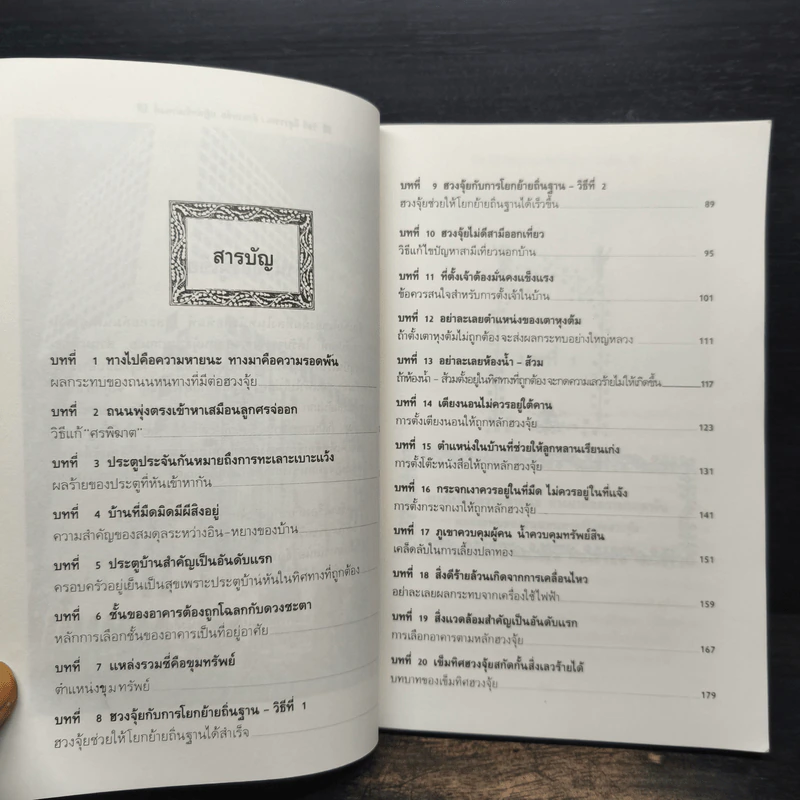 สารบัญ
บทที่ 1 ทางไปคือความหายนะ ทางมาคือความรอดพ้น
ผลกระทบของถนนหนทางที่มีต่อฮวงจุ้ย
บทที่ 2 ถนนพุ่งตรงเข้าหาเสมือนลูกศรจ่ออก
วิธีแก้"ศรพิฆาต"
บทที่ 3 ประตูประจันกันหมายถึงการทะเลาะเบาะแว้ง
ผลร้ายของประตูที่หันเข้าหากัน
บทที่ 4 บ้านที่มืดมิดมีผีสิงอยู่
ความสำคัญของสมดุลระหว่างอิน-หยางของบ้าน
บทที่ 5 ประตูบ้านสำคัญเป็นอันดับแรก
ครอบครัวอยู่เย็นเป็นสุขเพราะประตูบ้านหันในทิศทางที่ถูกต้อง
บทที่ 6 ชั้นของอาคารต้องถูกโฉลกกับดวงชะตา
หลักการเลือกชั้นของอาคารเป็นที่อยู่อาศัย
บทที่ 7 แหล่งรวมชี่คือขุมทรัพย์
ตำแหน่งขุมทรัพย์
บทที่ 8 ฮวงจุ้ยกับการโยกย้ายถิ่นฐาน - วิธีที่ 1
ฮวงจุ้ยช่วยให้โยกย้ายถิ่นฐานได้สำเร็จ
บทที่ 9 ฮวงจุ้ยกับการโยกย้ายถิ่นฐาน - วิธีที่ 2
ฮวงจุ้ยช่วยให้โยกย้ายถิ่นฐานได้เร็วขึ้น 89
บทที่ 10 ฮวงจุ้ยไม่ดีสามีออกเที่ยว
วิธีแก้ไขปัญหาสามีเที่ยวนอกบ้าน 95
บทที่ 11 ที่ตั้งเจ้าต้องมั่นคงแข็งแรง
ข้อควรสนใจสำหรับการตั้งเจ้าในบ้าน 101
บทที่ 12 อย่าละเลยตำแหน่งของเตาหุงต้ม
ถ้าตั้งเตาหุงต้มไม่ถูกต้อง จะส่งผลกระทบอย่างใหญ่หลวง 111
บทที่ 13 อย่าละเลยห้องน้ำ - ส้วม
ถ้าห้องน้ำ - ส้วมตั้งอยู่ในทิศทางที่ถูกต้อง จะกดความเลวร้ายไม่ให้เกิดขึ้น 117
บทที่ 14 เตียงนอนไม่ควรอยู่ใต้คาน
การตั้งเตียงนอนให้ถูกหลักฮวงจุ้ย 123
บทที่ 15 ตำแหน่งในบ้านที่ช่วยให้ลูกหลานเรียนเก่ง
การตั้งโต๊ะหนังสือให้ถูกหลักฮวงจุ้ย 131
บทที่ 16 กระจกเงาควรอยู่ในที่มืด ไม่ควรอยู่ในที่แจ้ง
การตั้งกระจกเงาให้ถูกหลักฮวงจุ้ย 141
บทที่ 17 ภูเขาควบคุมผู้คน น้ำควบคุมทรัพย์สิน
เคล็ดลับในการเลี้ยงปลาทอง 151
บทที่ 18 สิ่งดีร้ายล้วนเกิดจากการเคลื่อนไหว
อย่าละเลยผลกระทบจากเครื่องใช้ไฟฟ้า 159
บทที่ 19 สิ่งแวดล้อมสำคัญเป็นอันดับแรก
การเลือกอาคารตามหลักฮวงจุ้ย 167
บทที่ 20 เข็มทิศฮวงจุ้ยสกัดกั้นสิ่งเลวร้ายได้
บทบาทของเข็มทิศฮวงจุ้ย 179